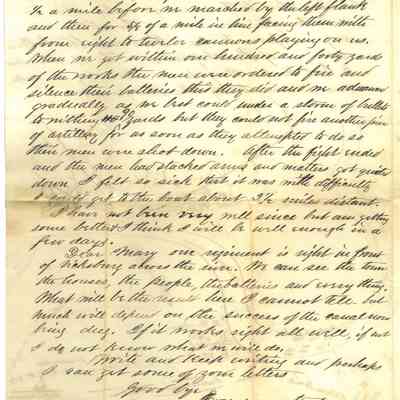 ¼ a mile before we marched by the left flank
and then for ¾ of a mile in line facing them with
from right to twelve cannons playing on us.
When we got within one hundred and forty yards
of the works the men were ordered to fire and
silence their batteries this they did and we advanced
gradually as we best could under a storm of bullets
to within yards but they could not fire another piece
of artillery for as soon as they attempted to do so
their men were shot down. After the fight ended
and the men had stacked arms and matters got quieted
down I felt so sick that it was with difficulty
I could get to the boat about 2½ miles distant.
I have not been very well since but am getting
some better I think I will be well enough in a
few days.
Dear Mary our regiment is right in front
of Vicksburg across the river. We can see the town
the houses, the people, the batteries and every thing.
What will be the results here I cannot tell but
much will depend on the success of the canal now
being dug. If it works right all will, if not
I do not know what we will do.
Write and keep writing and perhaps
I can get some of your letters
Good bye